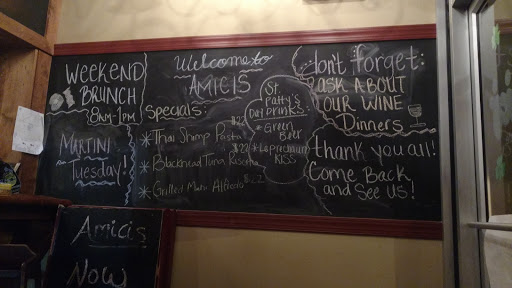 WEEKEND
BRUNCH
8AM-1PM
MARTINI
Tuesday!
Welcome to
AMICIS
Specials:
* Thai Shrimp Pasta $22
* Blackened Tuna Risotto $22
* Grilled Mahi Alfredo $22
St.
Patty's
Day DRINKS:
* Green
Beer
* Leprechaun
KISS
don't forget:
ASK ABOUT
OUR WINE
Dinners
thank you all!
Come Back
and See US!
Amicis
Now